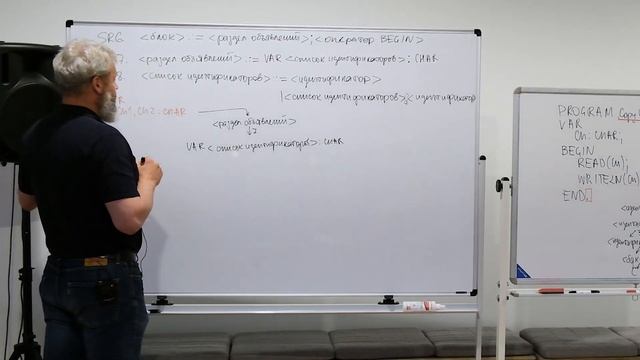 SRG <блок> ::= <раздел объявлений>; <оператор BEGIN>
7. <раздел объявлений> ::= VAR <список идентификаторов>; CHAR
8. <список идентификаторов> ::= <идентификатор>
|<список идентификаторов>,<идентификатор
Ch1, Ch2: CHAR
<раздел объявлений>
↓7
VAR <список идентификаторов>: CHAR
PROGRAM Copy
VAR
Ch: CHAR;
BEGIN
READ(Ch);
WRITELN(Ch)
END.